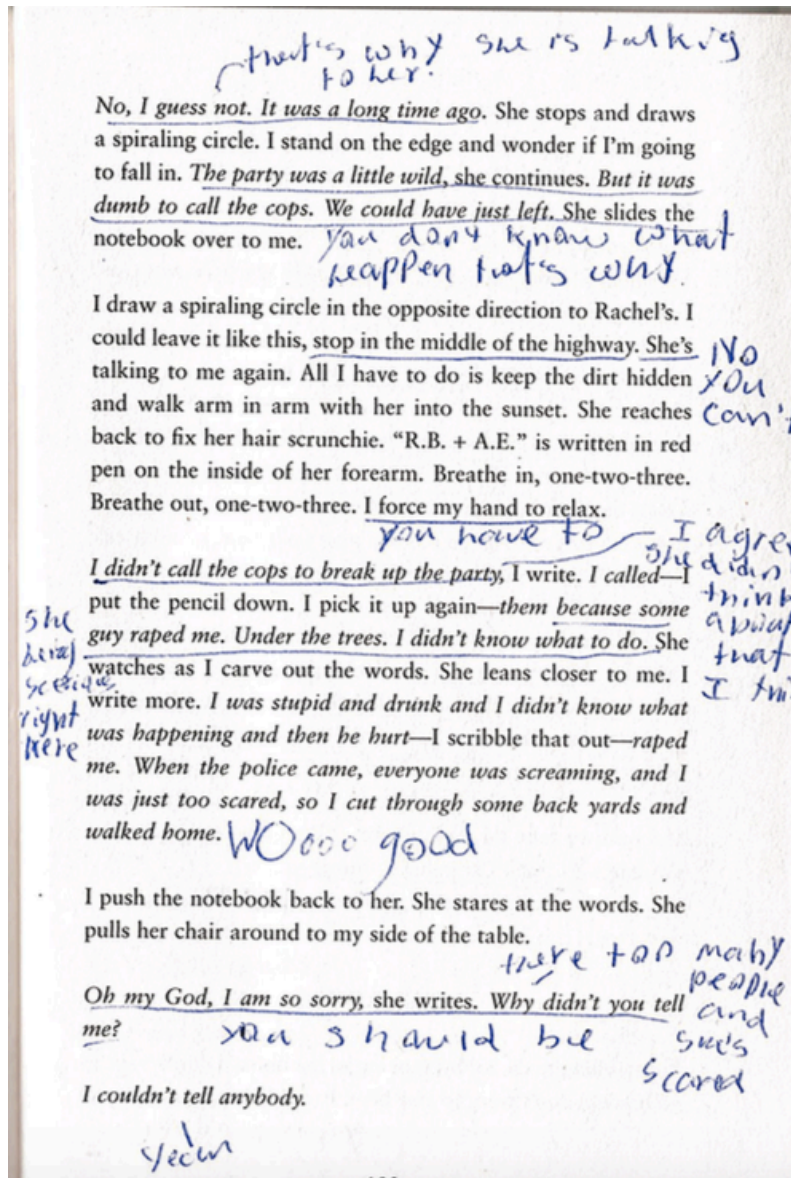 that's why she is talkig
to her.
No, I guess not. It was a long time ago. She stops and draws
a spiraling circle. I stand on the edge and wonder if I'm going
to fall in. The party was a little wild, she continues. But it was
dumb to call the cops. We could have just left. She slides the
notebook over to me. you don't know what
heappen that's why.
I draw a spiraling circle in the opposite direction to Rachel's. I
could leave it like this, stop in the middle of the highway. She's
talking to me again. All I have to do is keep the dirt hidden
and walk arm in arm with her into the sunset. She reaches
back to fix her hair scrunchie. “R.B. + A.E.” is written in red
pen on the inside of her forearm. Breathe in, one-two-three.
Breathe out, one-two-three. I force my hand to relax.
No
you
can't
you have to
I didn't call the cops to break up the party, I write. I called—I
put the pencil down. I pick it up again—them because some
guy raped me. Under the trees. I didn't know what to do. She
watches as I carve out the words. She leans closer to me. I
write more. I was stupid and drunk and I didn't know what
was happening and then he hurt—I scribble that out—raped
me. When the police came, everyone was screaming, and I
was just too scared, so I cut through some back yards and
walked home. WOooo good
I agre
she didn
think
about
that
I thi
she
being
right
here
I push the notebook back to her. She stares at the words. She
pulls her chair around to my side of the table.
there too many
people
and
she's
scared
Oh my God, I am so sorry, she writes. Why didn't you tell
me? you should be
I couldn't tell anybody.
yeah